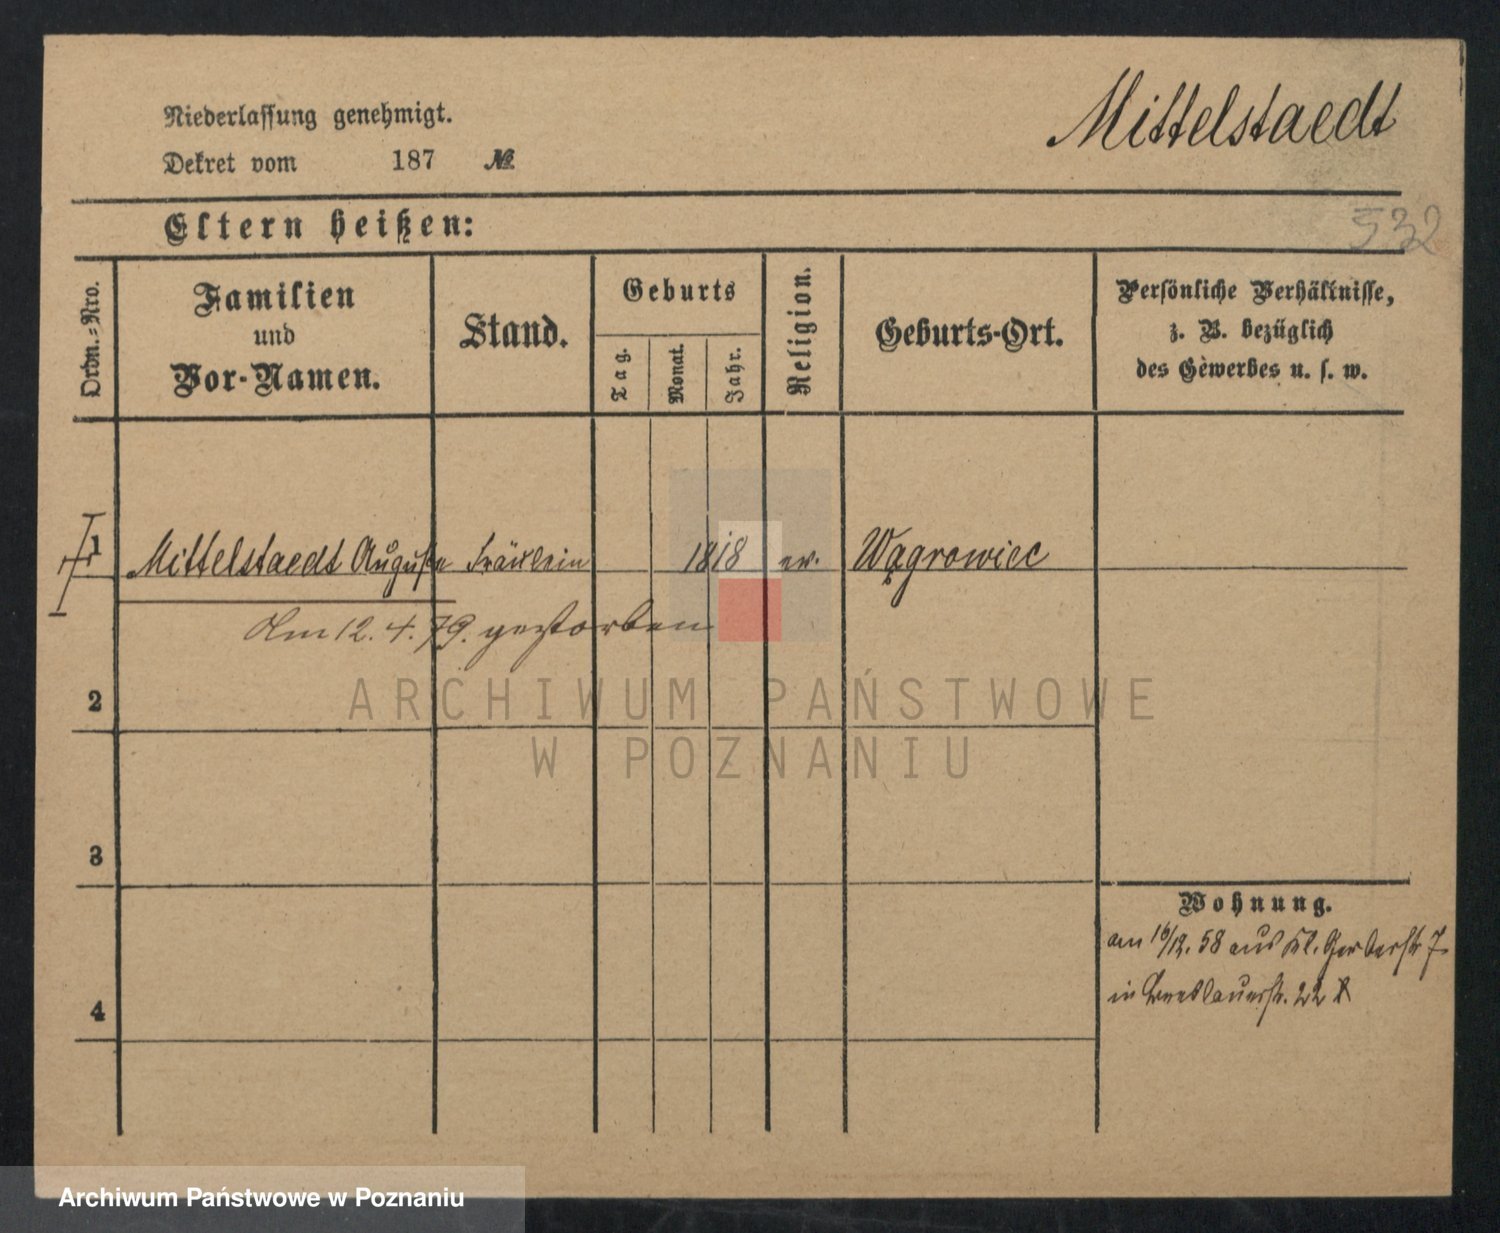 Mittelstaedt
Niederlassung genehmigt.
Dekret vom 187 №
532
Eltern heißen:
Ordn.=Nro.
Familien
und
Vor-Namen.
Stand.
Geburts
Tag.
Monat.
Jahr.
Religion.
Geburts-Ort.
Persönliche Verhältnisse,
z. B. bezüglich
des Gewerbes u. s. w.
1 Mittelstaedt Auguste Fräulein 1818 ev. Wągrowiec
Am 12. 4. 79. gestorben
2
ARCHIWUM PAŃSTWOWE
W POZNANIU
3
Wohnung.
am 16/12. 58 aus Kl. Gerberstr 7
in Breslauerstr. 22
4
Archiwum Państwowe w Poznaniu